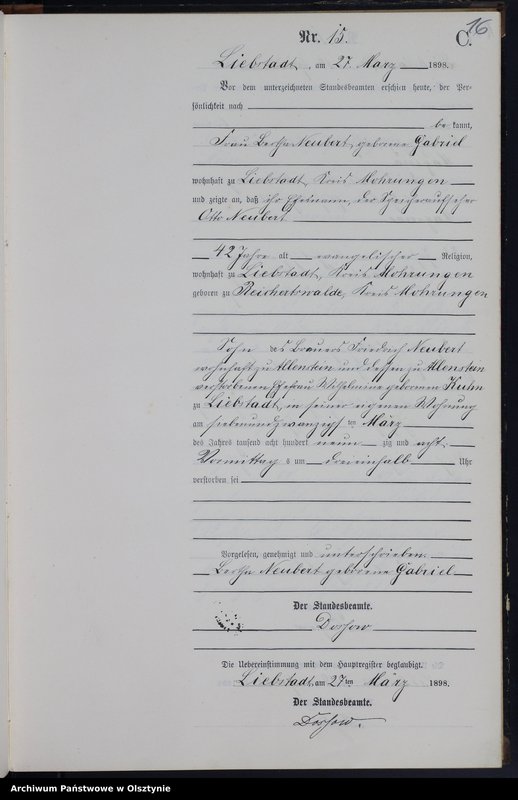 16
Nr. 15.
C.
Liebstadt, am 27. März 1898.
Vor dem unterzeichneten Standesbeamten erschien heute, der Per-
sönlichkeit nach
be kannt,
Frau Bertha Neubert, geborene Gabriel
wohnhaft zu Liebstadt, Kreis Mohrungen
und zeigte an, daß ihr Ehemann, der Speicheraufseher
Otto Neubert
42 Jahre alt, evangelischer Religion,
wohnhaft zu Liebstadt, Kreis Mohrungen
geboren zu Reichertswalde, Kreis Mohrungen
Sohn des Brauers Friedrich Neubert
wohnhaft zu Allenstein und dessen zu Allenstein
verstorbenen Ehefrau Wilhelmine geborenen Kuhn
zu Liebstadt, in seiner eigenen Wohnung
am siebenundzwanzigsten März
des Jahres tausend acht hundert neunzig und acht
Vormittags um dreieinhalb Uhr
verstorben sei
Vorgelesen, genehmigt und unterschrieben.
Bertha Neubert geborene Gabriel
Der Standesbeamte.
Die Uebereinstimmung mit dem Hauptregister beglaubigt.
Liebstadt, am 27ten März 1898.
Der Standesbeamte.
Archiwum Państwowe w Olsztynie